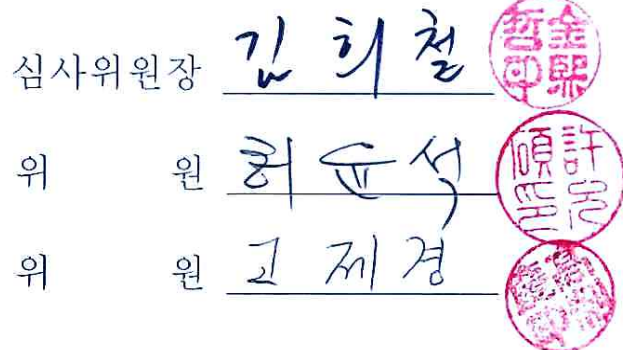 심사위원장 김희철 金熙哲印
위 원 허윤석 許允碩印
위 원 고제경